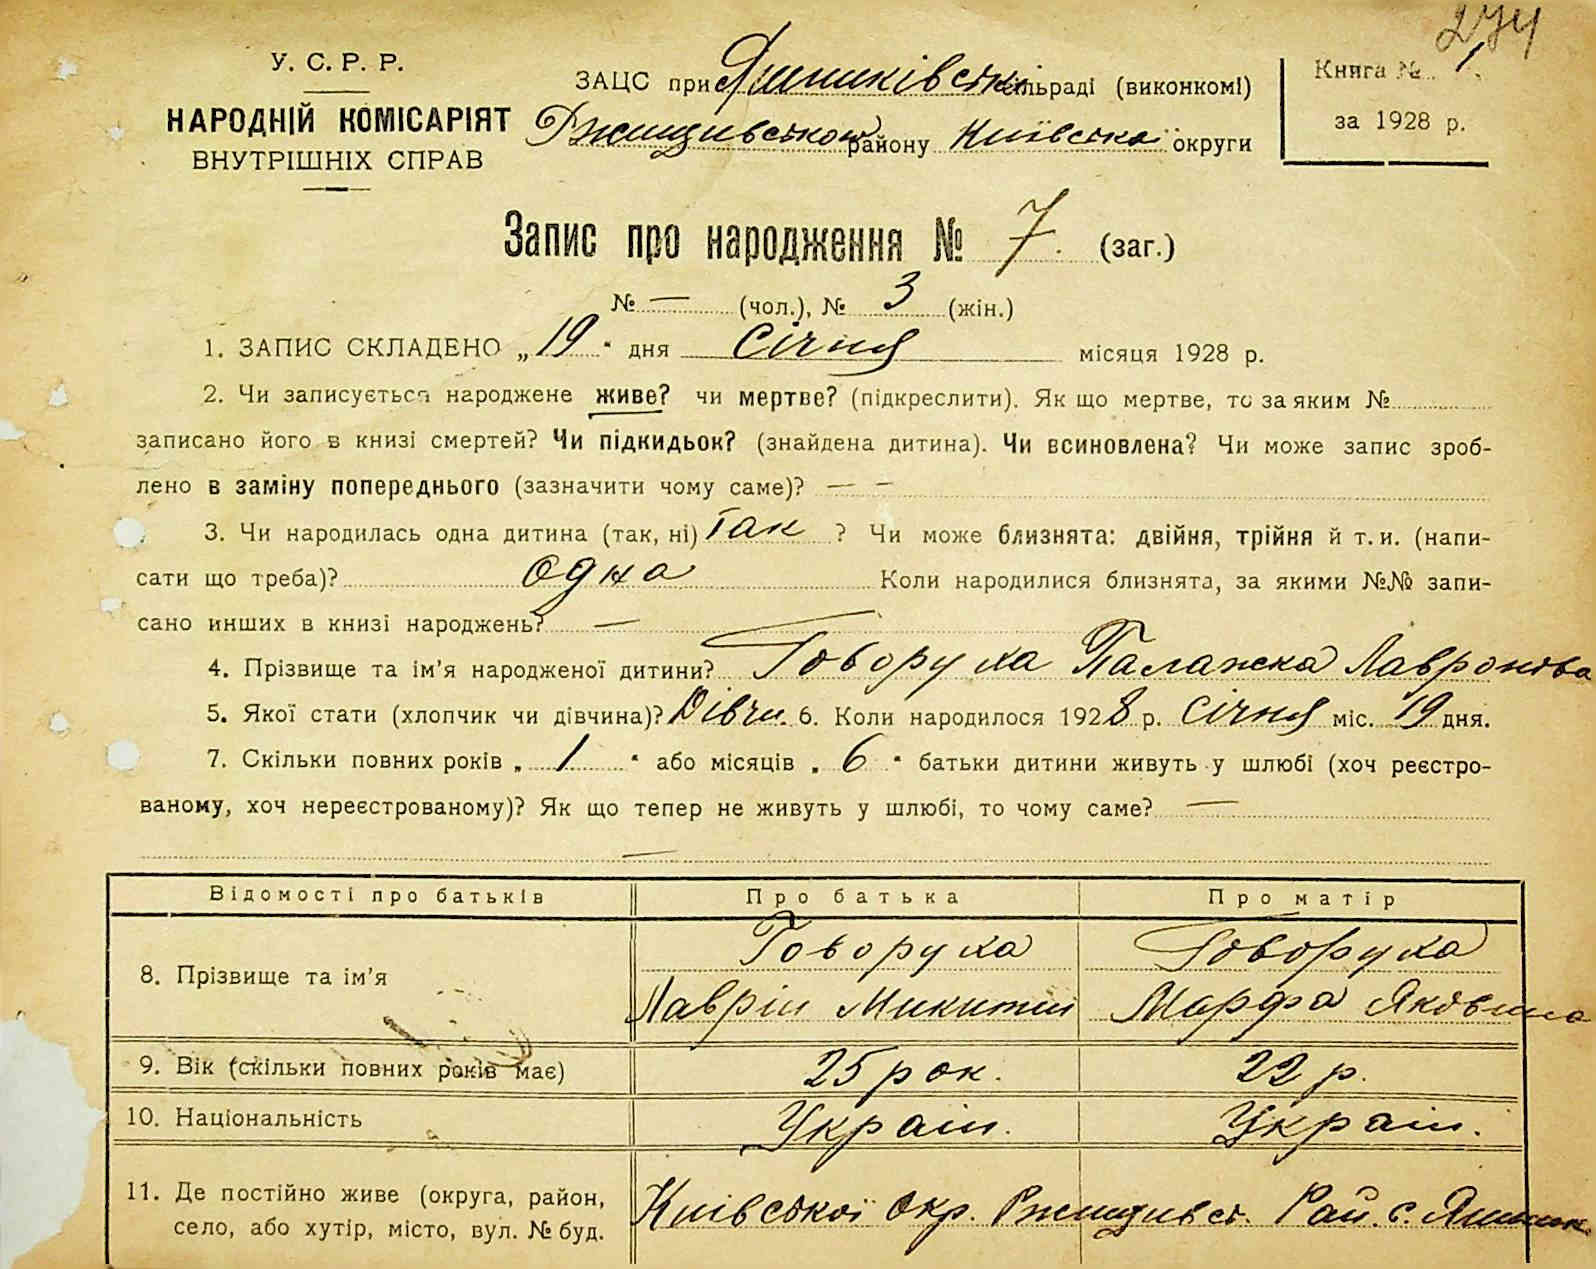 274
У. С. Р. Р.
НАРОДНІЙ КОМІСАРІЯТ
ВНУТРІШНІХ СПРАВ
ЗАЦС при Яшниківській сільраді (виконкомі)
Ржищивського району Київської округи
Книга № 1.
за 1928 р.
Запис про народження № 7. (заг.)
№ — (чол.), № 3 (жін.)
1. ЗАПИС СКЛАДЕНО „19“ дня Січня місяця 1928 р.
2. Чи записується народжене живе? чи мертве? (підкреслити). Як що мертве, то за яким №
записано його в книзі смертей? Чи підкидьок? (знайдена дитина). Чи всиновлена? Чи може запис зроб-
лено в заміну попереднього (зазначити чому саме)? — —
3. Чи народилась одна дитина (так, ні) Так ? Чи може близнята: двійня, трійня й т. и. (напи-
сати що треба)? Одна Коли народилися близнята, за якими №№ запи-
сано инших в книзі народжень? —
4. Прізвище та ім’я народженої дитини? Говоруха Палажка Лавронова
5. Якої стати (хлопчик чи дівчина)? Дівчи. 6. Коли народилося 1928 р. Січня міс. 19 дня.
7. Скільки повних років „ 1 “ або місяців „ 6 “ батьки дитини живуть у шлюбі (хоч реєстро-
ваному, хоч нереєстрованому)? Як що тепер не живуть у шлюбі, то чому саме? —
—
Відомості про батьків Про батька Про матір
8. Прізвище та ім’я Говоруха Лаврін Микитин Говоруха Марфа Яковина
9. Вік (скільки повних років має) 25 рок. 22 р.
10. Національність Україн. Україн.
11. Де постійно живе (округа, район,
село, або хутір, місто, вул. № буд. Київської Окр. Ржищивсь. Рай. с. Яшник.